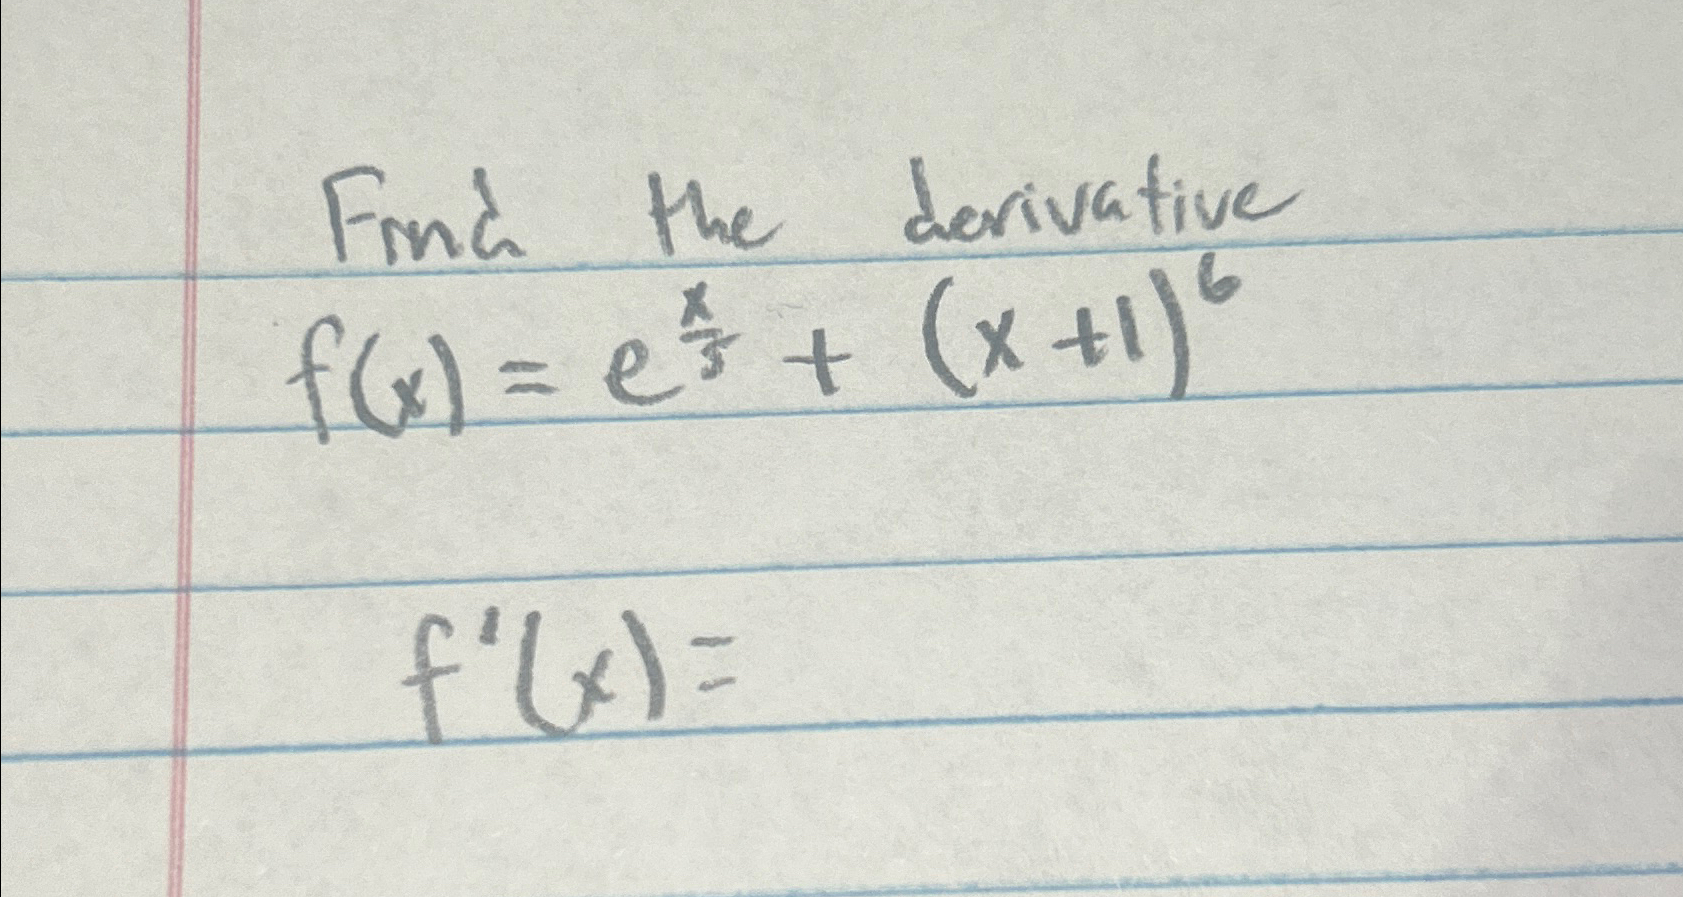 Find the derivative
f(x) = e^{\frac{x}{5}} + (x+1)^6
f'(x) =